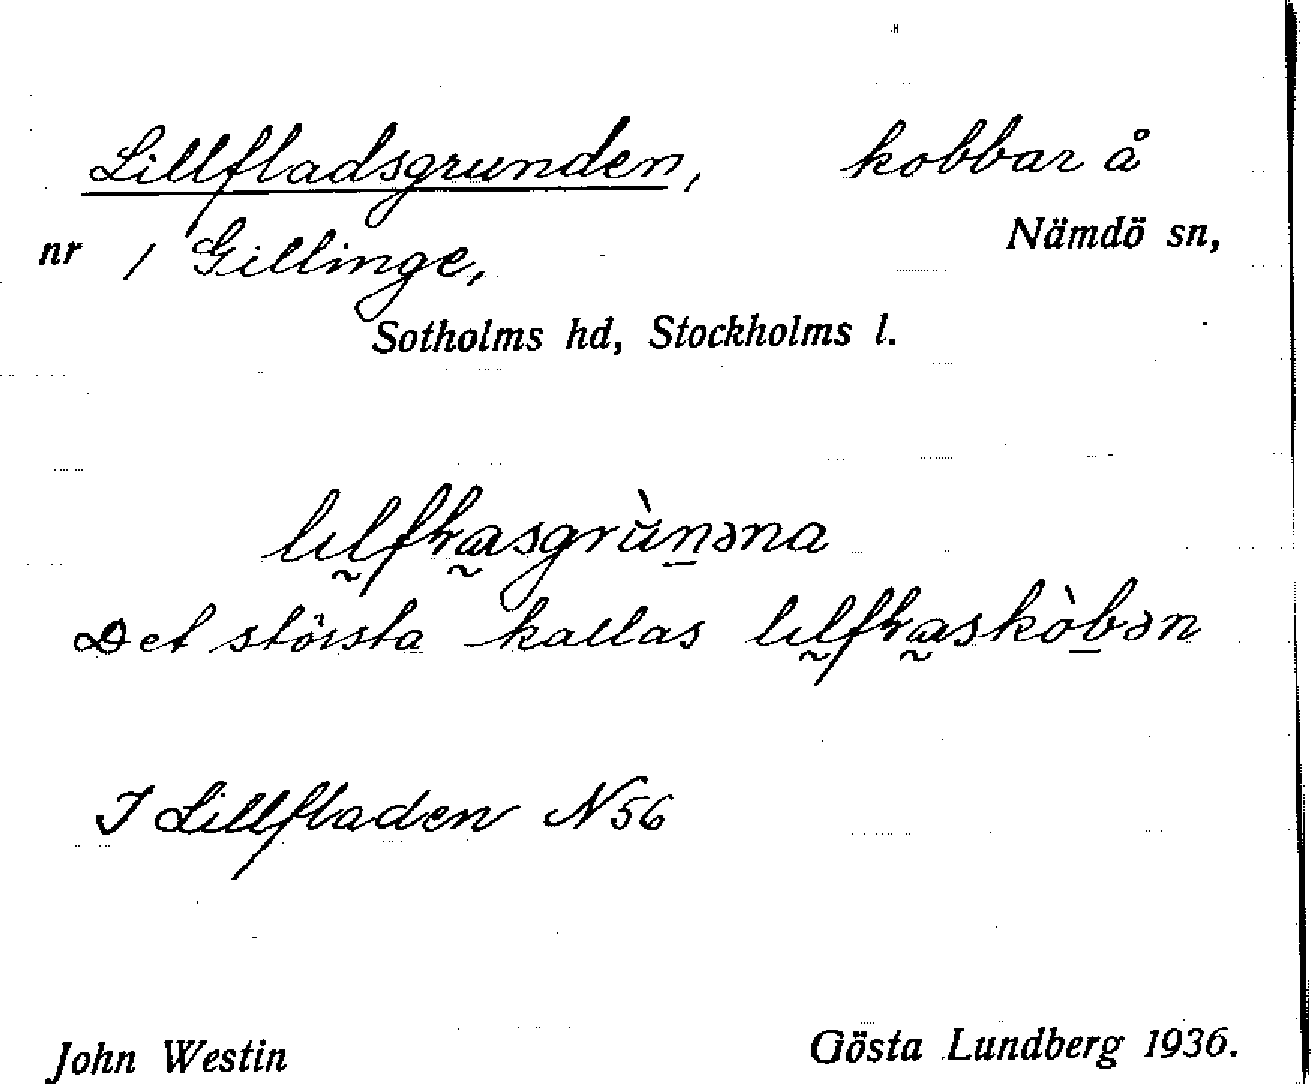 Lillfladsgrunden, kobbar å
nr 1 Gillinge, Nämdö sn,
Sotholms hd, Stockholms l.
Det största kallas
I Lillfladen N 56
John Westin Gösta Lundberg 1936.